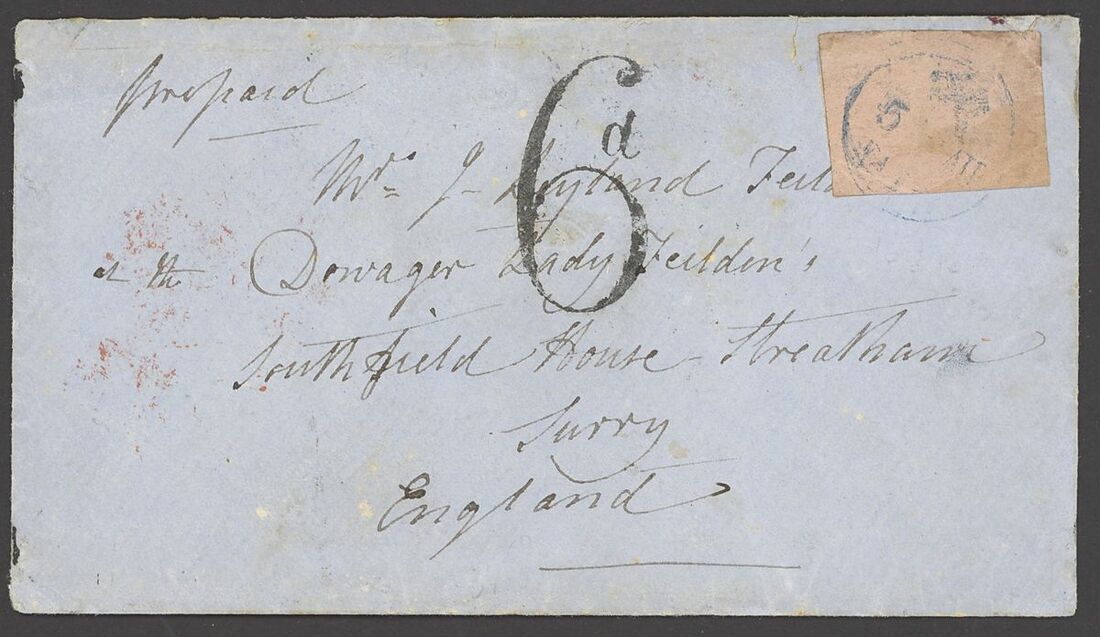 prepaid
6d
Mrs J- Leyland Feild
at the Dowager Lady Feilden's
Southfield House - Streatham
Surry
England
5